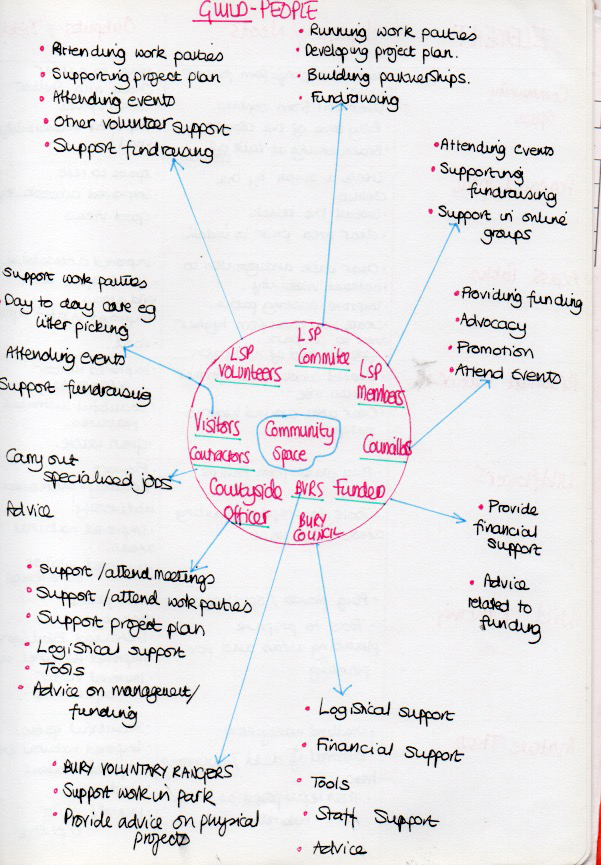 GUILD-PEOPLE
• Attending work parties
• Supporting project plan
• Attending events
• Other volunteer support
• Support fundraising
• Running work parties
• Developing project plan.
• Building partnerships.
• Fundraising
• Attending events
• Supporting
fundraising
• Support in online
groups
• Providing funding
• Advocacy
• Promotion
• Attend Events
Support work parties
Day to day care eg
litter picking
Attending events
Support fundraising
Carry out
specialised jobs
Advice
LSP
Volunteers
LSP
Commitee
LSP
Members
Visitors
Contractors
Community
Space
Councillors
Countryside
Officer
BVRS
Funded
BURY
COUNCIL
• Provide
financial
support
• Advice
related to
funding
• Support /attend meetings
• Support /attend work parties
• Support project plan
• Logistical support
• Tools
• Advice on management/
funding
• BURY VOLUNTARY RANGERS
• Support work in park
• Provide advice on physical
projects
• Logistical support
• Financial support
• Tools
• Staff Support
• Advice